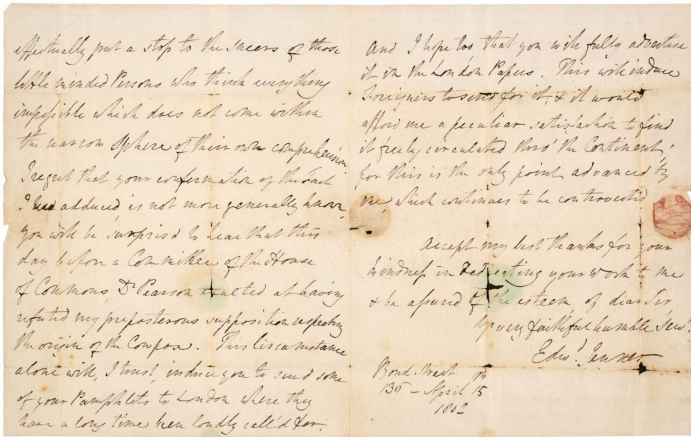 effectually put a stop to the sneers of those
little minded Persons who think everything
impossible which does not come within
the narrow sphere of their own comprehension
I regret that your confirmation of the fact
I had adduced is not more generally known,
you will be surprised to hear that this
day before a Committee of the House
of Commons, Dr Pearson exulted at having
refuted my preposterous supposition respecting
the origin of the Cowpox. This Circumstance
alone will, I trust, induce you to send some
of your Pamphlets to London where they
have a long time been loudly call'd for.
And I hope too that you will fully advertise
it in the London Papers. This will induce
Foreigners to send for it, & it would
afford me a peculiar satisfaction to find
it freely circulated thro' the Continent;
for this is the only point advanced by
me, which continues to be controverted
Accept my best thanks for your
kindness in dedicating your work to me
& be assured of the esteem of dear Sir
Yr very faithful humble Servt
Edwd. Jenner
Bond Street
136 - April 15th
1802